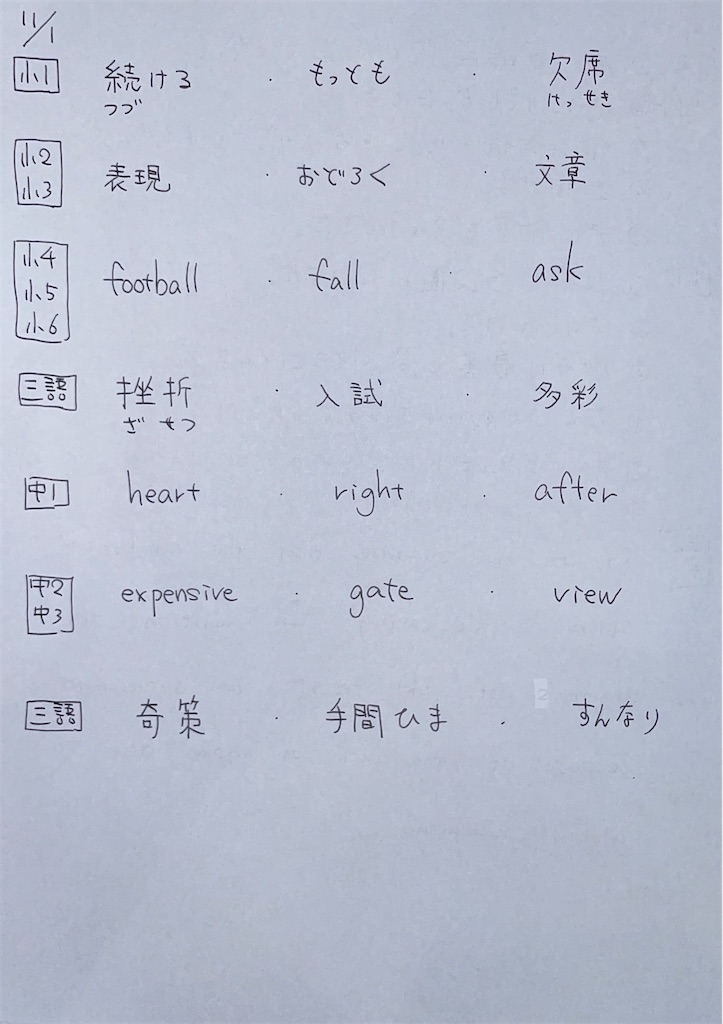 11/1
小1 続ける ・ もっとも ・ 欠席
つづ けっせき
小2 小3 表現 ・ おどろく ・ 文章
小4 小5 小6 football ・ fall ・ ask
三語 挫折 ・ 入試 ・ 多彩
ざせつ
中1 heart ・ right ・ after
中2 中3 expensive ・ gate ・ view
三語 奇策 ・ 手間ひま ・ すんなり